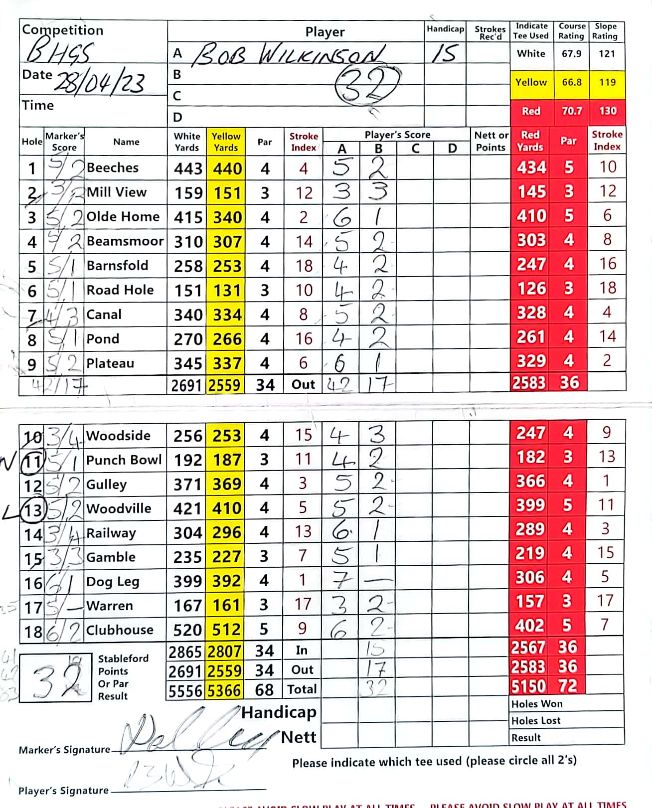 Competition Player Handicap Strokes Rec'd Indicate Tee Used Course Rating Slope Rating
BHGS A BOB WILKINSON 15 White 67.9 121
Date 28/04/23 B 32 Yellow 66.8 119
C
Time D Red 70.7 130
Hole Marker's Score Name White Yards Yellow Yards Par Stroke Index Player's Score A B C D Nett or Points Red Yards Par Stroke Index
1 5/2 Beeches 443 440 4 4 5 2 434 5 10
2 3/2 Mill View 159 151 3 12 3 3 145 3 12
3 5/2 Olde Home 415 340 4 2 6 1 410 5 6
4 /2 Beamsmoor 310 307 4 14 5 2 303 4 8
5 5/1 Barnsfold 258 253 4 18 4 2 247 4 16
6 5/1 Road Hole 151 131 3 10 4 2 126 3 18
7 4/3 Canal 340 334 4 8 5 2 328 4 4
8 5/1 Pond 270 266 4 16 4 2 261 4 14
9 5/2 Plateau 345 337 4 6 6 1 329 4 2
42/17 2691 2559 34 Out 42 17 2583 36
10 3/4 Woodside 256 253 4 15 4 3 247 4 9
11 5/1 Punch Bowl 192 187 3 11 4 2 182 3 13
12 5/2 Gulley 371 369 4 3 5 2 366 4 1
13 5/2 Woodville 421 410 4 5 5 2 399 5 11
14 3/4 Railway 304 296 4 13 6 1 289 4 3
15 3/3 Gamble 235 227 3 7 5 1 219 4 15
16 6/1 Dog Leg 399 392 4 1 7 — 306 4 5
17 5/— Warren 167 161 3 17 3 2 157 3 17
18 6/2 Clubhouse 520 512 5 9 6 2 402 5 7
2865 2807 34 In 15 2567 36
32 Stableford Points Or Par Result 2691 2559 34 Out 17 2583 36
5556 5366 68 Total 32 5150 72
Handicap Holes Won
Nett Holes Lost
Result
Marker's Signature
Please indicate which tee used (please circle all 2's)
Player's Signature
PLEASE AVOID SLOW PLAY AT ALL TIMES PLEASE AVOID SLOW PLAY AT ALL TIMES